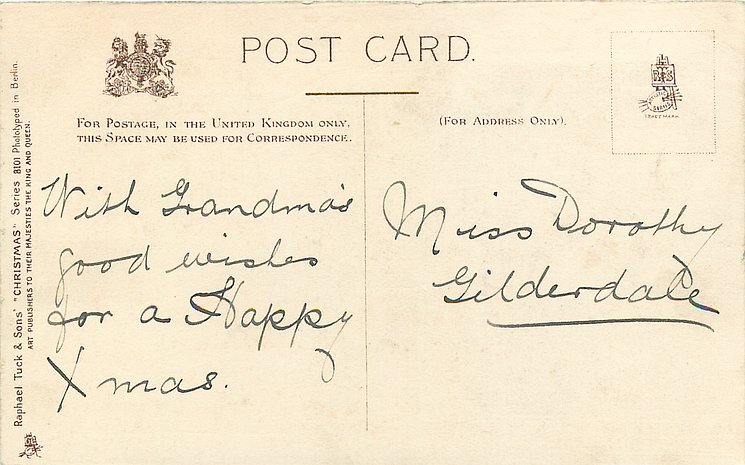 POST CARD.
FOR POSTAGE, IN THE UNITED KINGDOM ONLY,
THIS SPACE MAY BE USED FOR CORRESPONDENCE.
(FOR ADDRESS ONLY).
TRADE MARK
Raphael Tuck & Sons' "CHRISTMAS" Series 8101 Phototyped in Berlin.
ART PUBLISHERS TO THEIR MAJESTIES THE KING AND QUEEN.
With Grandma's
good wishes
for a Happy
Xmas.
Miss Dorothy
Gilderdale